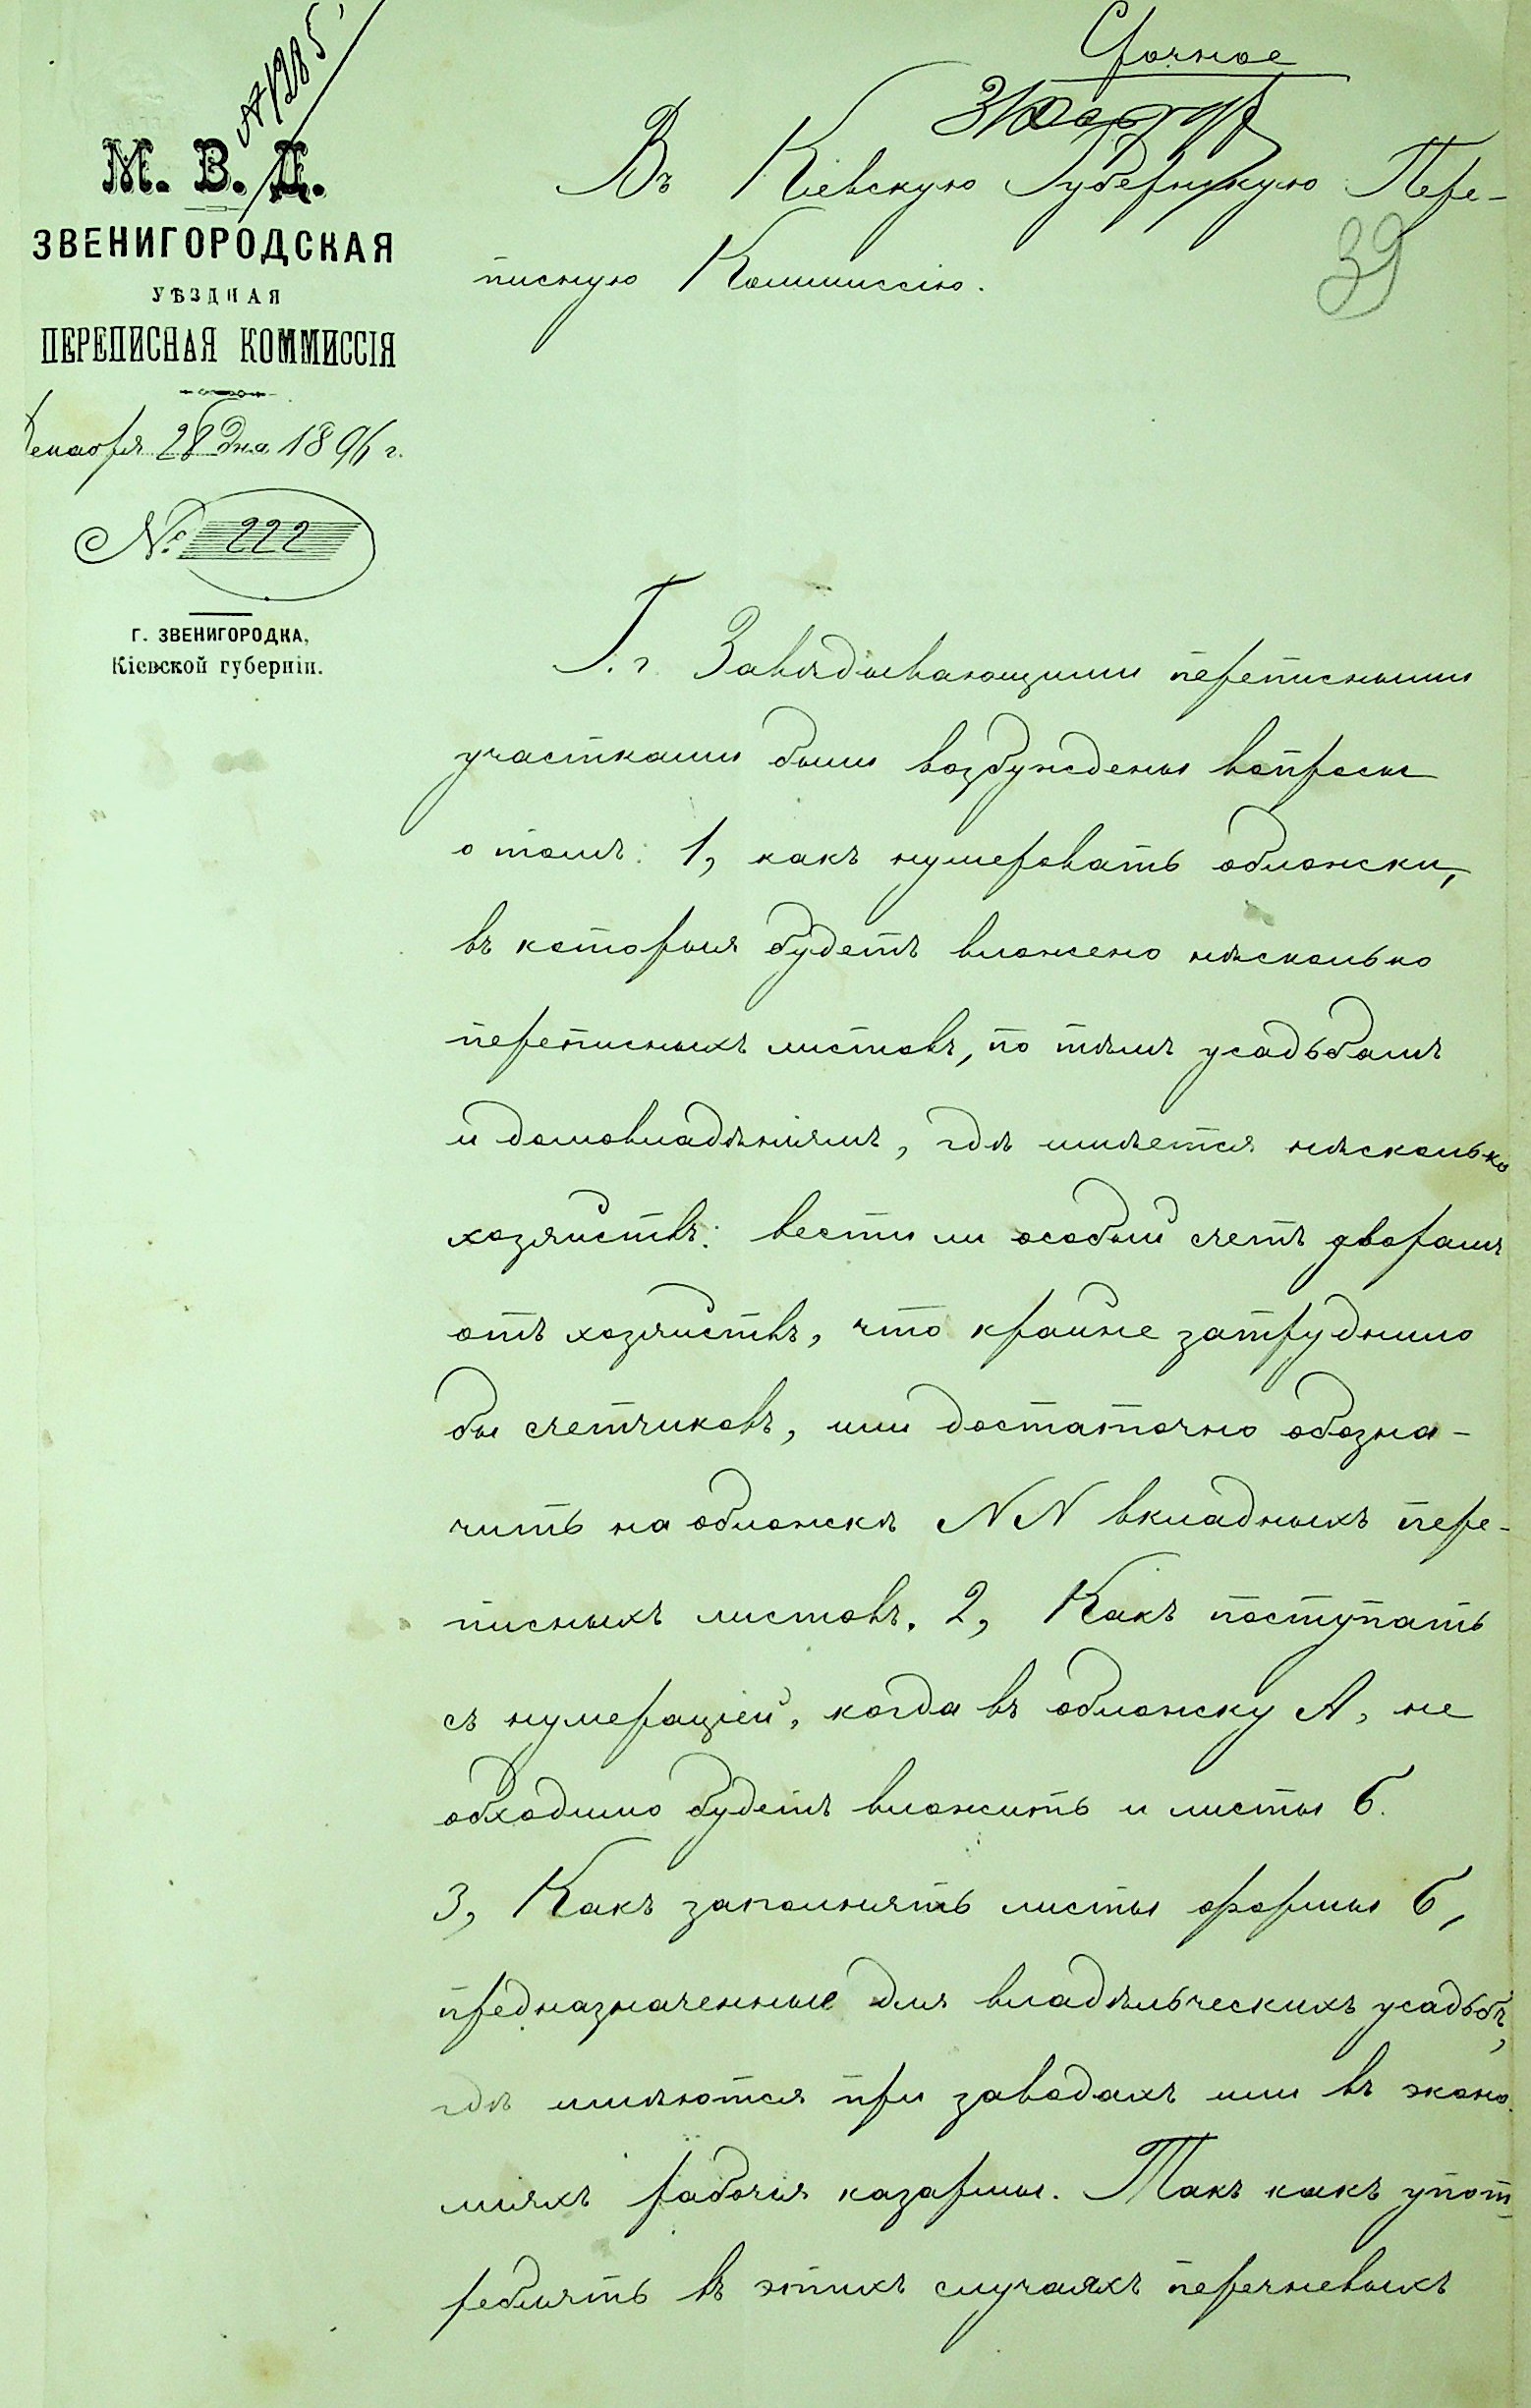 № 1285
М. В. Д.
ЗВЕНИГОРОДСКАЯ
УѢЗДНАЯ
ПЕРЕПИСНАЯ КОММИССІЯ
Декабря 28 дня 1896 г.
№ 222
Г. ЗВЕНИГОРОДКА,
Кіевской губерніи.
Срочное
Въ Кіевскую Губернскую Пере-
писную Коммиссію.
39
Г.г. Завѣдывающими переписными
участками были возбуждены вопросы
о томъ: 1, какъ нумеровать обложки,
въ которыя будетъ вложено нѣсколько
переписныхъ листовъ, по тѣмъ усадьбамъ
и домовладѣніямъ, гдѣ имѣется нѣсколько
хозяйствъ: вести ли особый счетъ дворамъ
отъ хозяйствъ, что крайне затруднило
бы счетчиковъ, или достаточно обозна-
чить на обложкѣ NN вкладныхъ пере-
писныхъ листовъ. 2, Какъ поступать
съ нумераціей, когда въ обложку А, не
обходимо будетъ вложить и листы Б.
3, Какъ заполнять листы формы Б,
предназначенные для владѣльческихъ усадьбъ,
гдѣ имѣются при заводахъ или въ эконо
міяхъ рабочія казармы. Такъ какъ упот
реблять въ этихъ случаяхъ перечневыхъ